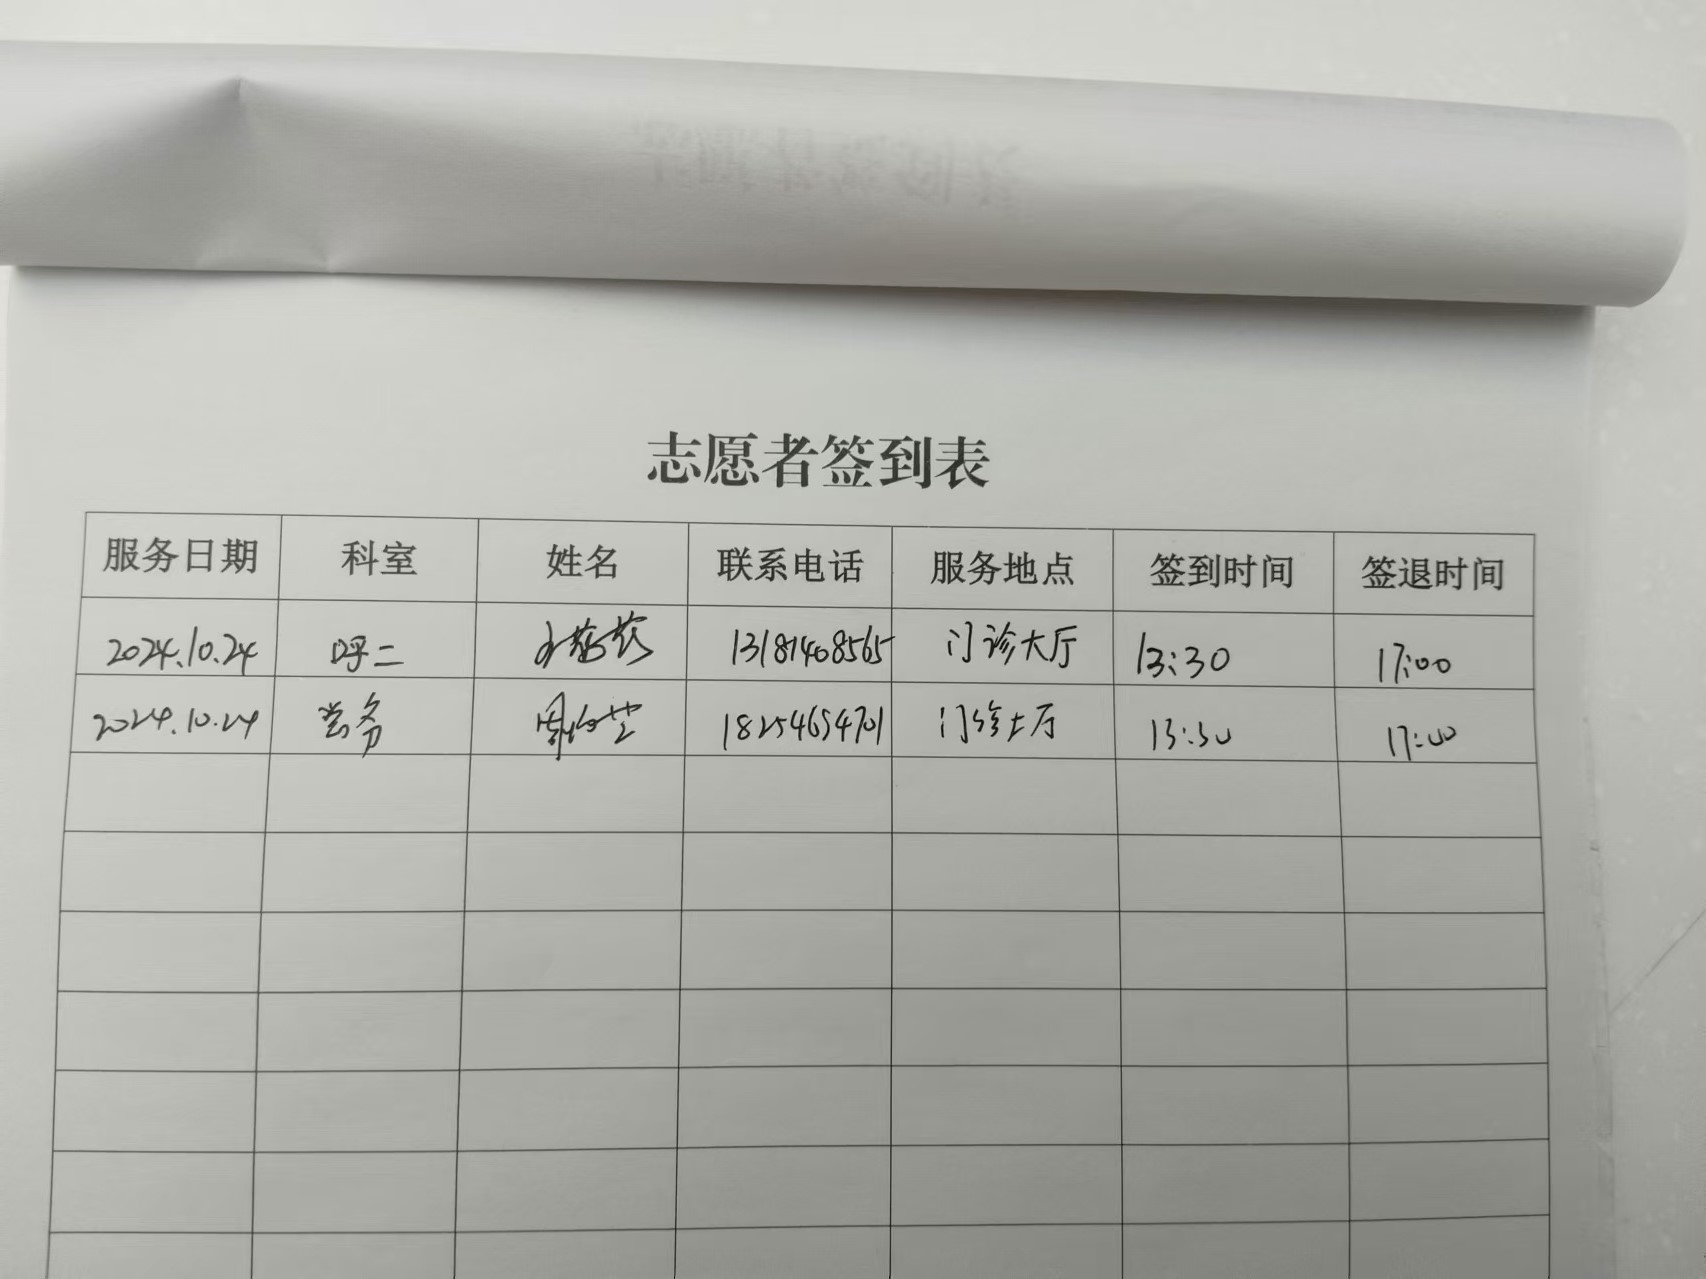 志愿者签到表
服务日期 科室 姓名 联系电话 服务地点 签到时间 签退时间
2024.10.24 呼二 13181408565 门诊大厅 13:30 17:00
2024.10.24 党务 18254654701 门诊大厅 13:30 17:00